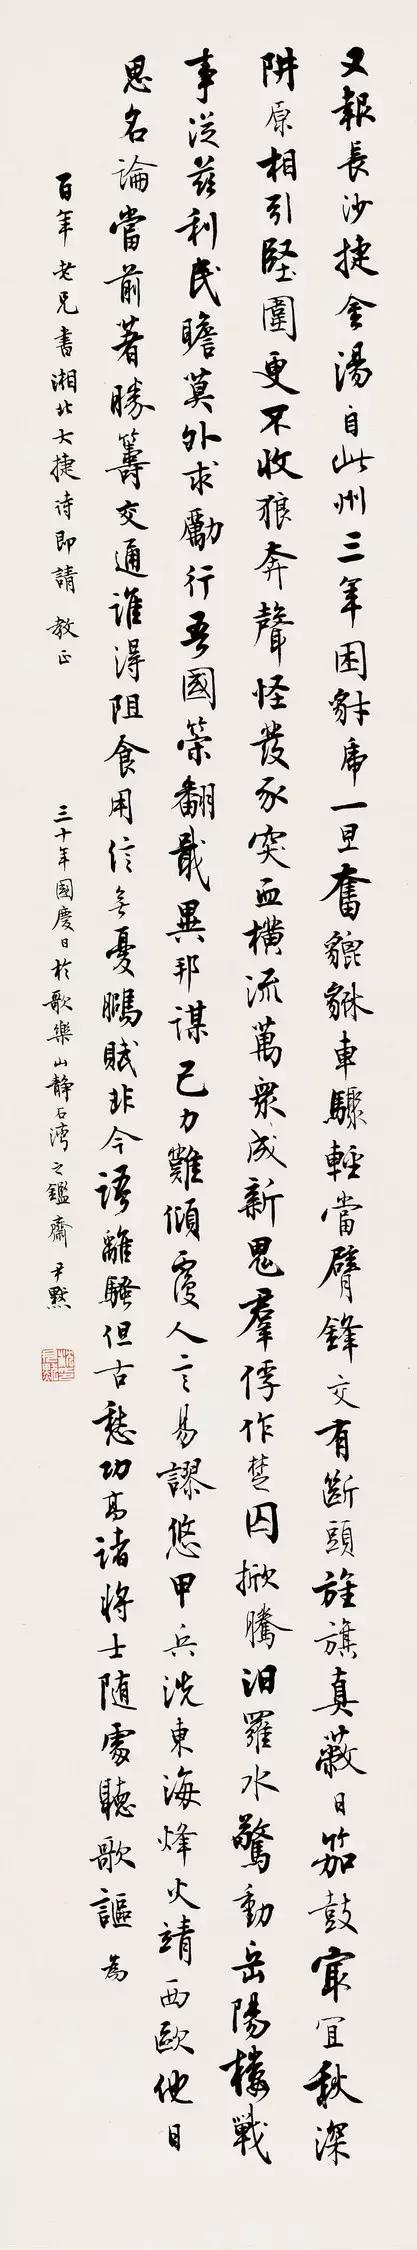 又報長沙捷金湯自此州三年困豺虎一旦奮貔貅車驟輕當臂鋒交有斷頭旌旗真蔽日笳鼓最宜秋深
阱原相引堅圍更不收狼奔聲怪發豕突血橫流萬眾成新鬼羣俘作楚囚掀騰汨羅水驚動岳陽樓戰
事從茲利民瞻莫外求勵行吾國策翻戢異邦謀己力難傾覆人言易謬悠甲兵洗東海烽火靖西歐他日
思名論當前著勝籌交通誰得阻食用信無憂鵩賦非今語離騷但古愁功高諸將士隨處聽歌謳 為
百年老兄書湘北大捷詩即請 教正
三十年國慶日於歌樂山靜石灣之鑑齋 尹默